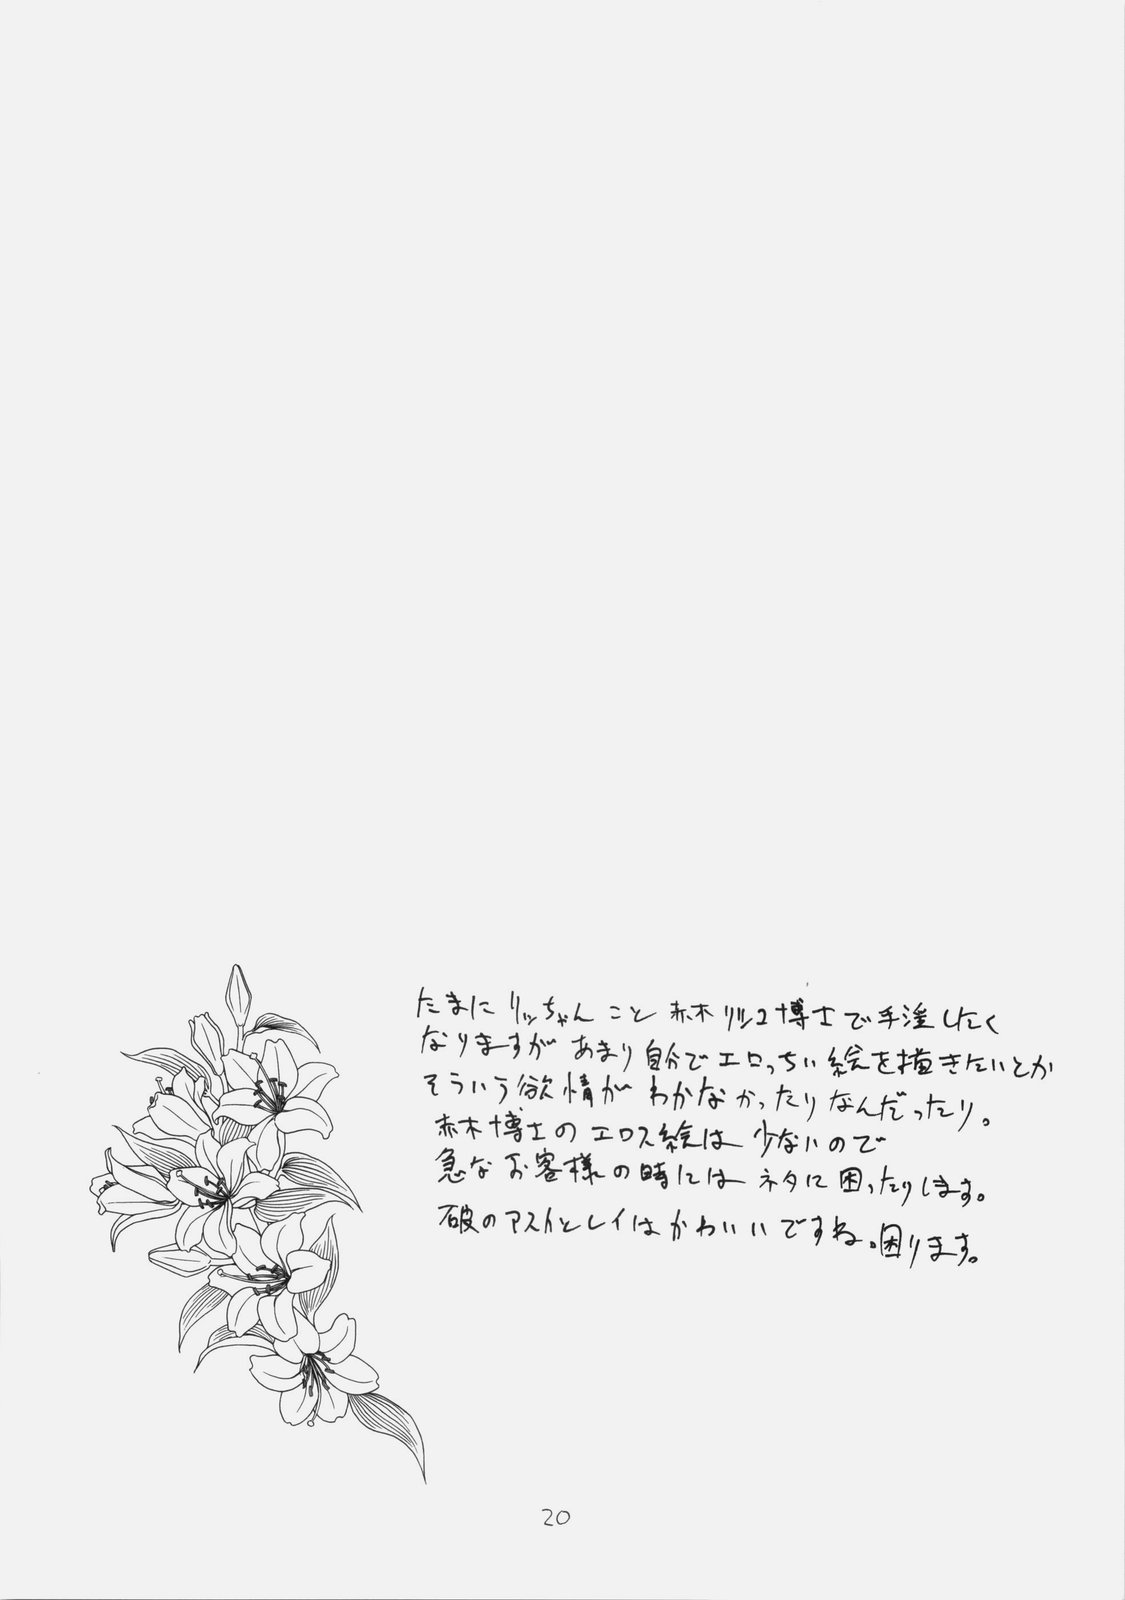 たまに リッちゃん こと 赤木 リツコ 博士で手淫したく
なりますが あまり 自分で エロっちい 絵を描きたいとか
そういう欲情が わかなかったりなんだったり。
赤木博士の エロス絵は 少ないので
急なお客様の時には ネタに困ったりします。
破のアスカとレイは かわいいですね。困ります。
20